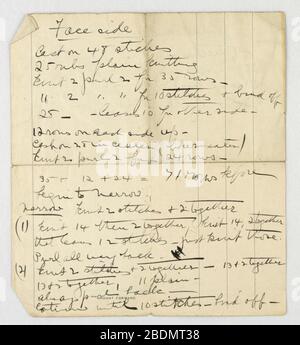 Face side
Cast on 48 stiches
25 ribs plain knitting
Knit 2 purl 2 for 35 rows
11 2 " " for 10 stitches & bind off
25 — leaves 10 for other side
12 rows on each side up
Cast on 25 in center
Knit 2 purl 2 rows
35 + 12 + 24 = 71 rows before
begin to narrow.
narrow Knit 2 stitches & 2 together
(1) Knit 14 then 2 together, Knit 14, 2 together
that leaves 12 stitches - just knit those
Purl all way back.
(2) Knit 2 stitches & 2 together — 13 & 2 together
13 & 2 together, 11 plain
always purl back
until 10 stitches - bind off -
alamy
Image ID: 2BDMT38
www.alamy.com